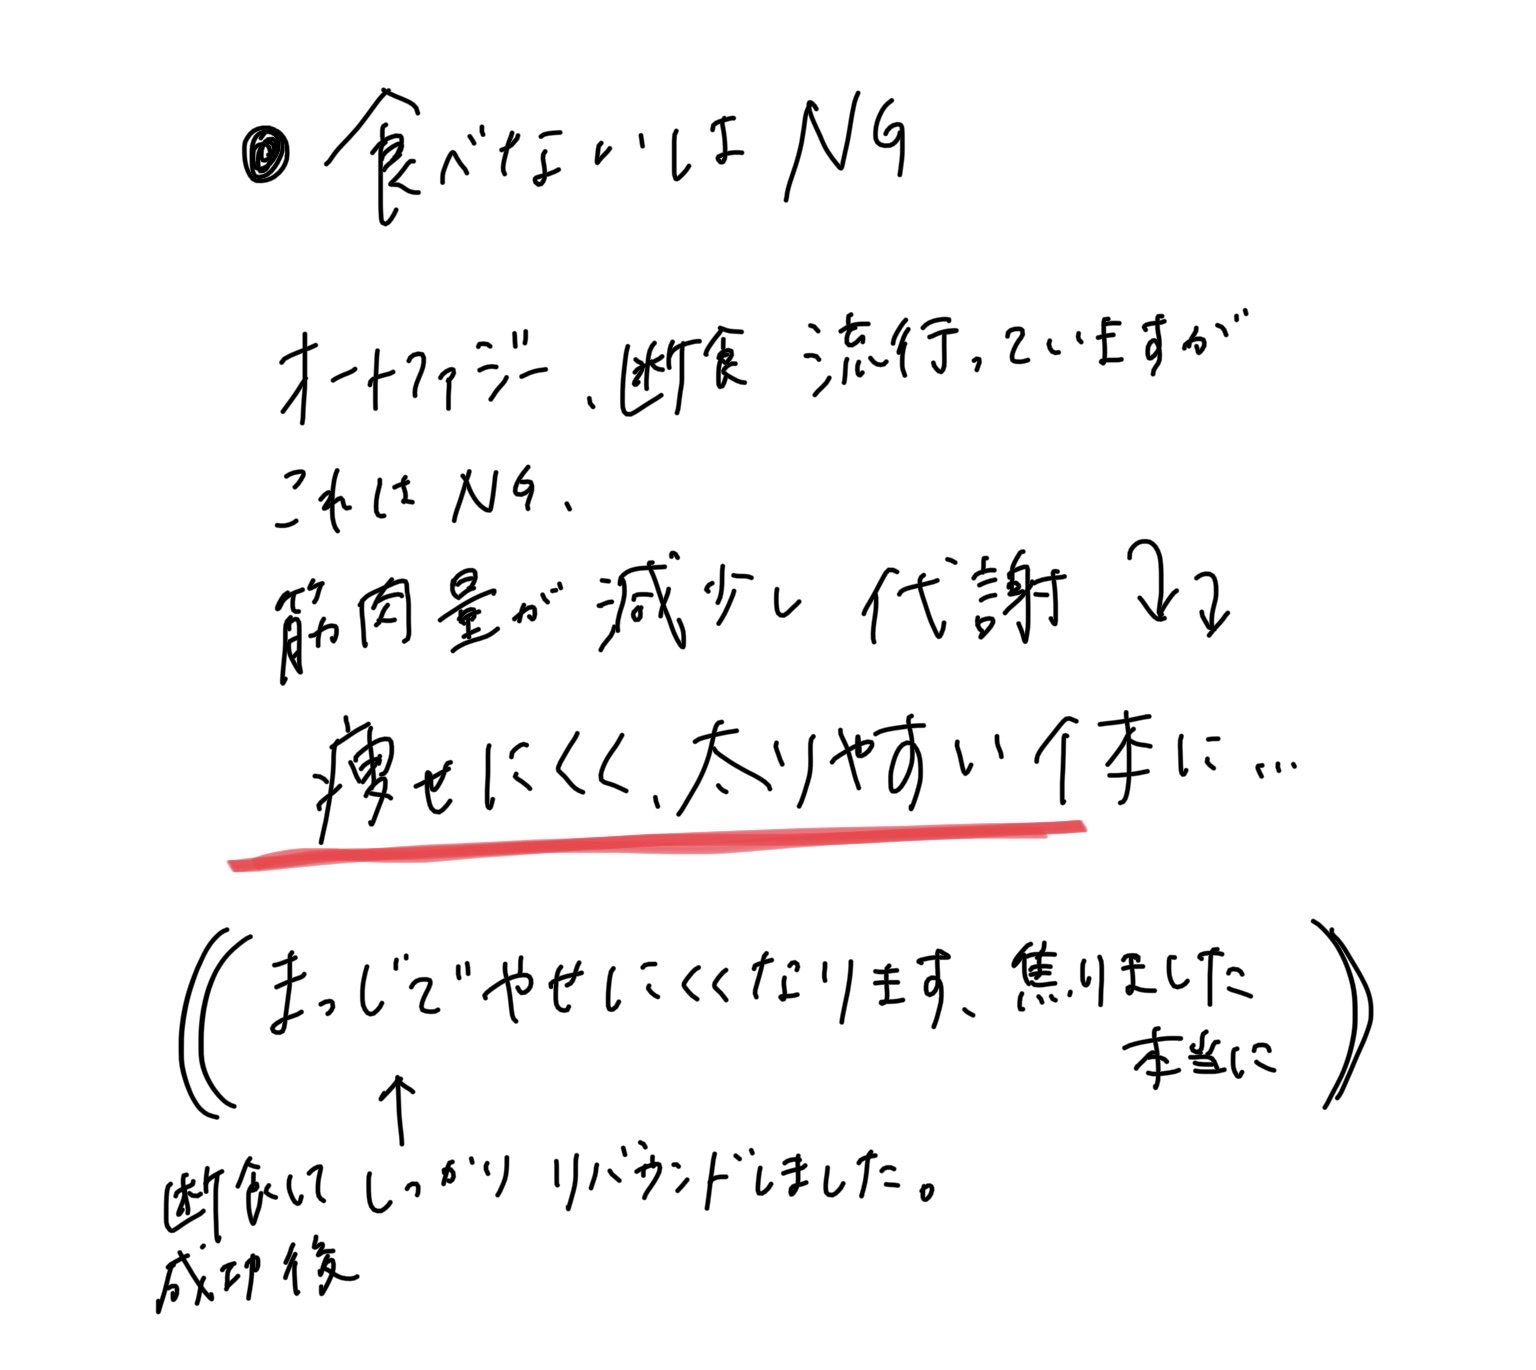 ● 食べないはNG
オートファジー、断食 流行っていますが
これはNG、
筋肉量が減少し 代謝 ⤵⤵
痩せにくく、太りやすい体に…
((まっじでやせにくくなります、焦りました
本当に))
↑
断食して しっかり リバウンドしました。
成功後